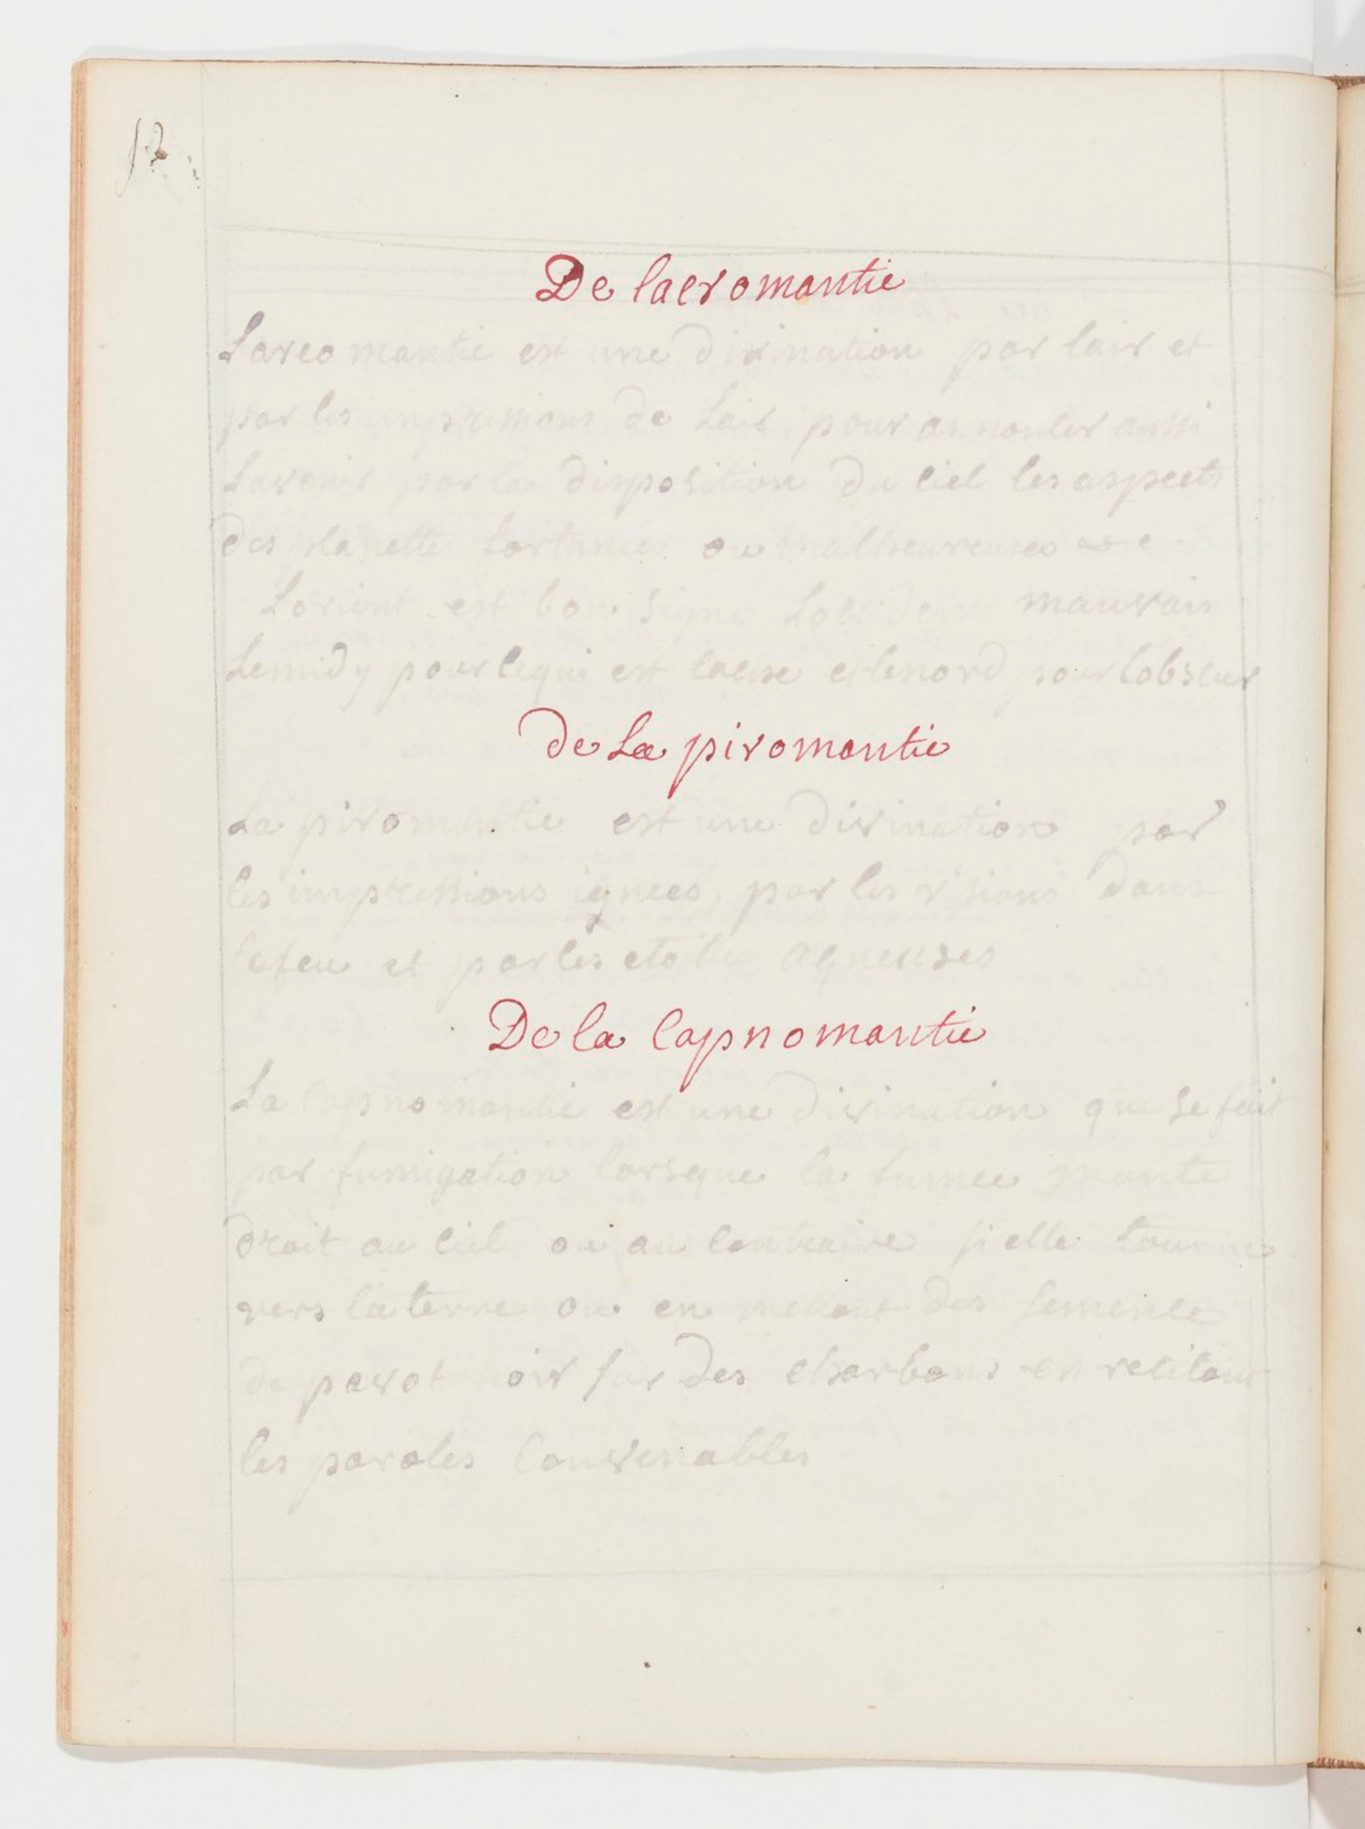 12
De laeromantie
Lareomantie est une divination par lair et
par les impressions de Lair pour annonler aussi
Lavenir par la disposition du liel les aspects
des planettes fortunes ou malheureuses
Lorient est bon signe Lollident mauvais
Lemidy pour lequi est laise et lenord pour lobslur
de La piromantie
La piromantie est une divination par
les impressions ignees, par les visions dans
lefeu et par les etoilles
De la lapnomantie
La lapnomantie est une divination qui se fait
par fumigation lorsque la fumee monte
droit au liel ou au lontraire si elle tourne
vers laterre ou en mettant des semenle
de pavot noir sur des charbons en relitant
les paroles lonvenables